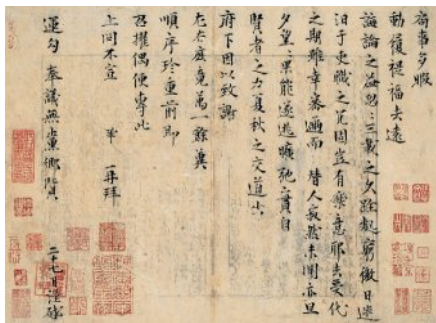 局事多暇
動履禔福去遠
誨論之益忽忽三載之久跧處窮徼日迷
汨于吏職之冗固豈有樂意耶去受代
之期雖幸密邇而替人寂然未聞亦旦
夕望望果能遂逃曠弛實自
賢者之力夏秋之交道出
府下因以致謝
左右庶竟萬一餘冀
順序珍重前即
召擢偶便專此
上問不宣 鞏再拜
運勾奉議無黨鄉賢 二十七日謹啓